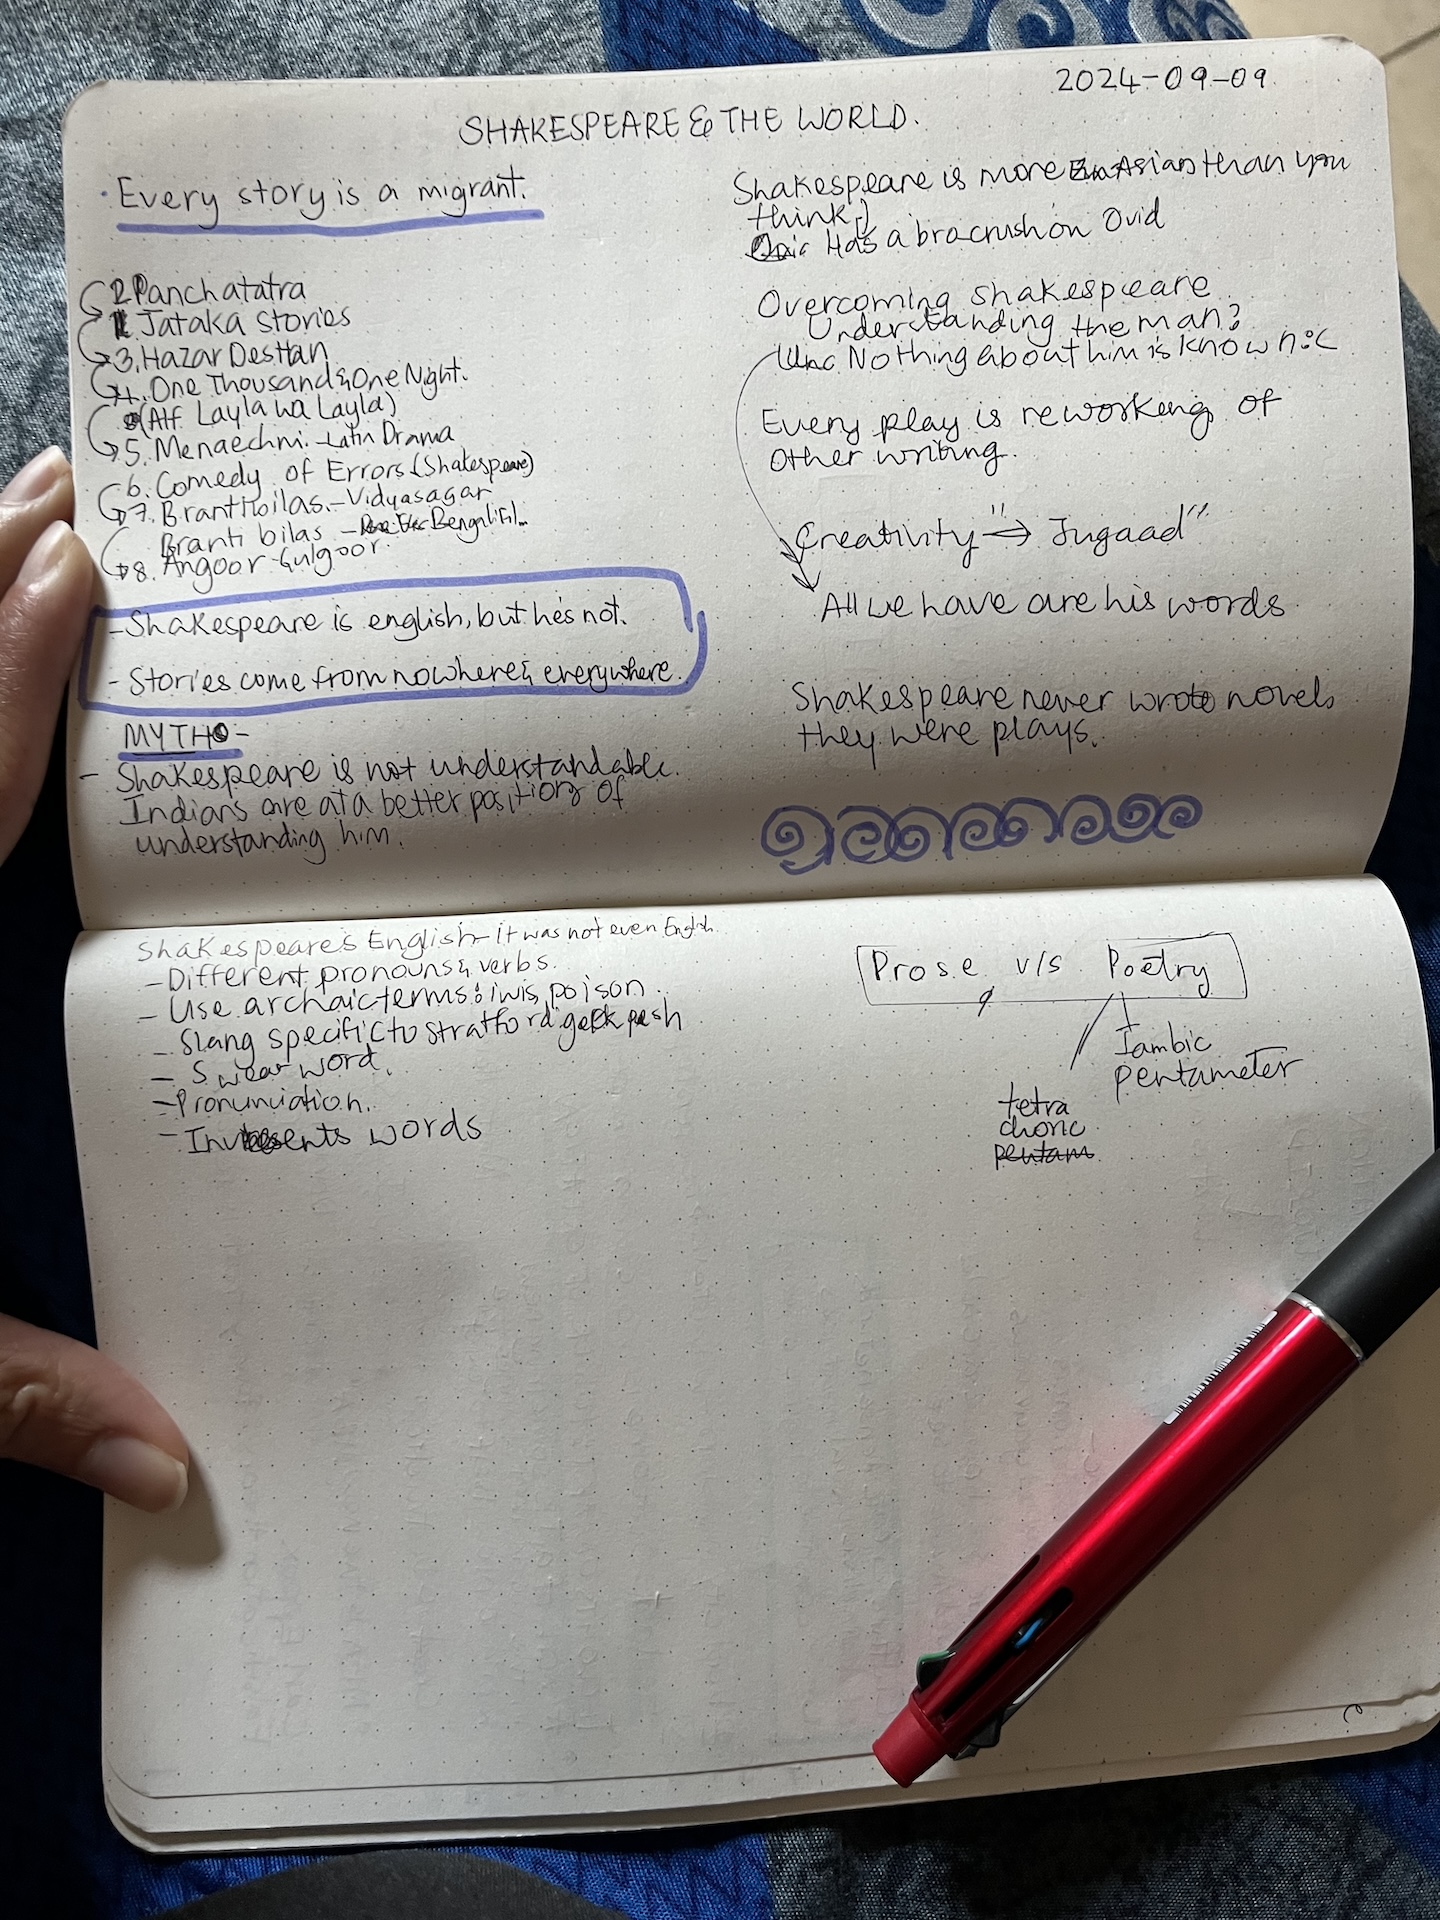 2024-09-09
SHAKESPEARE & THE WORLD.
· Every story is a migrant.
2 Panchatatra
1 Jataka Stories
3. Hazar Destan
4. One Thousand & One Night.
(Alf Layla wa Layla)
5. Menaechmi - Latin Drama
6. Comedy of Errors (Shakespeare)
7. Brantibilas. - Vidyasagar
Branti bilas - Bengali
8. Angoor Gulgoor.
- Shakespeare is english, but he's not.
- Stories come from nowhere & everywhere.
MYTH -
- Shakespeare is not understandable.
Indians are at a better position of
understanding him.
Shakespeare is more Asian than you
think :)
Has a bracrush on Ovid
Overcoming Shakespeare
Understanding the man?
Nothing about him is known :C
Every play is reworking of
other writing.
Creativity "⇒ Jugaad"
All we have are his words
Shakespeare never wrote novels
they were plays.
Shakespeare's English - it was not even English
- Different pronouns & verbs.
- Use archaic terms: iwis, poison.
- Slang specific to Stratford
- Swear word.
- Pronunciation.
- Invents words
Prose v/s Poetry
Iambic
pentameter
tetra
choric
pentam